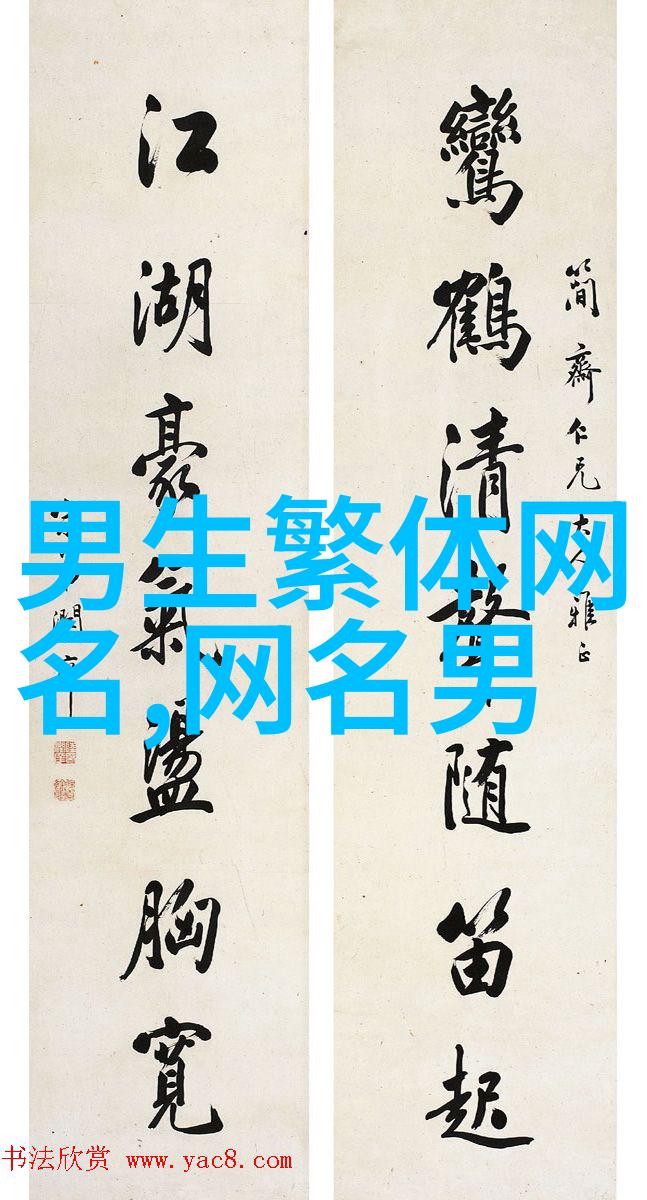 簡齋仁兄大人雅正
鸞鶴清聲随笛起
江湖豪氣盪胸寬
男生繁体网
名,网名男
书法欣赏 www.yac8.com